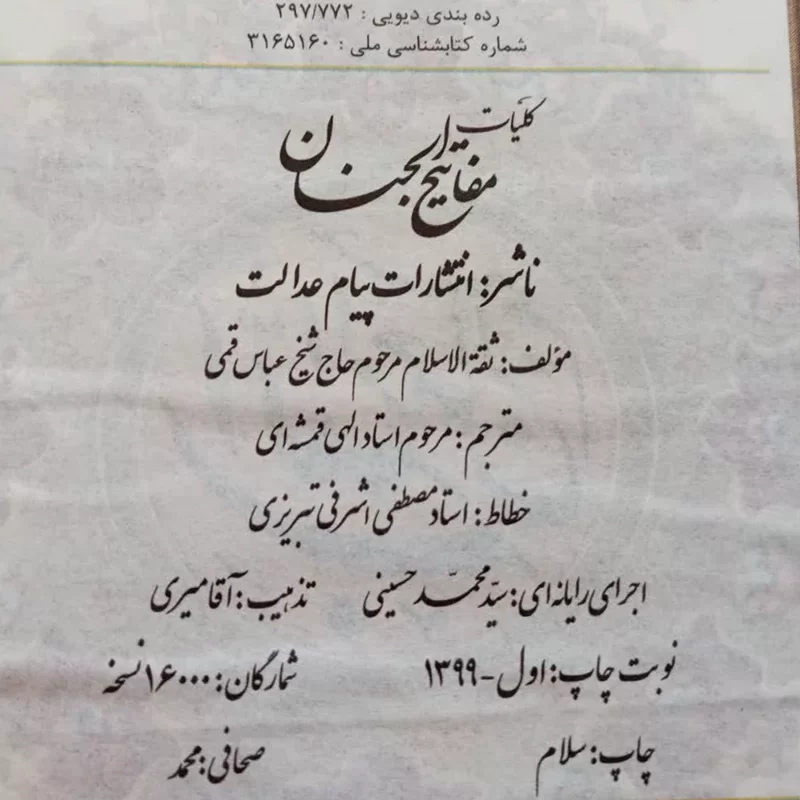 رده بندی دیویی : ۲۹۷/۷۷۲
شماره کتابشناسی ملی : ۳۱۶۵۱۶۰
کلیّات
مفاتیح الجنان
ناشر: انتشارات پیام عدالت
مؤلف: ثقة الاسلام مرحوم حاج شیخ عباس قمی
مترجم: مرحوم استاد الهی قمشه ای
خطاط: استاد مصطفی اشرفی تبریزی
اجرای رایانه ای: سیّد محمّد حسینی تذهیب: آقامیری
نوبت چاپ: اول - ۱۳۹۹ شمارگان: ۱۶۰۰۰ نسخه
چاپ: سلام صحافی: محمد